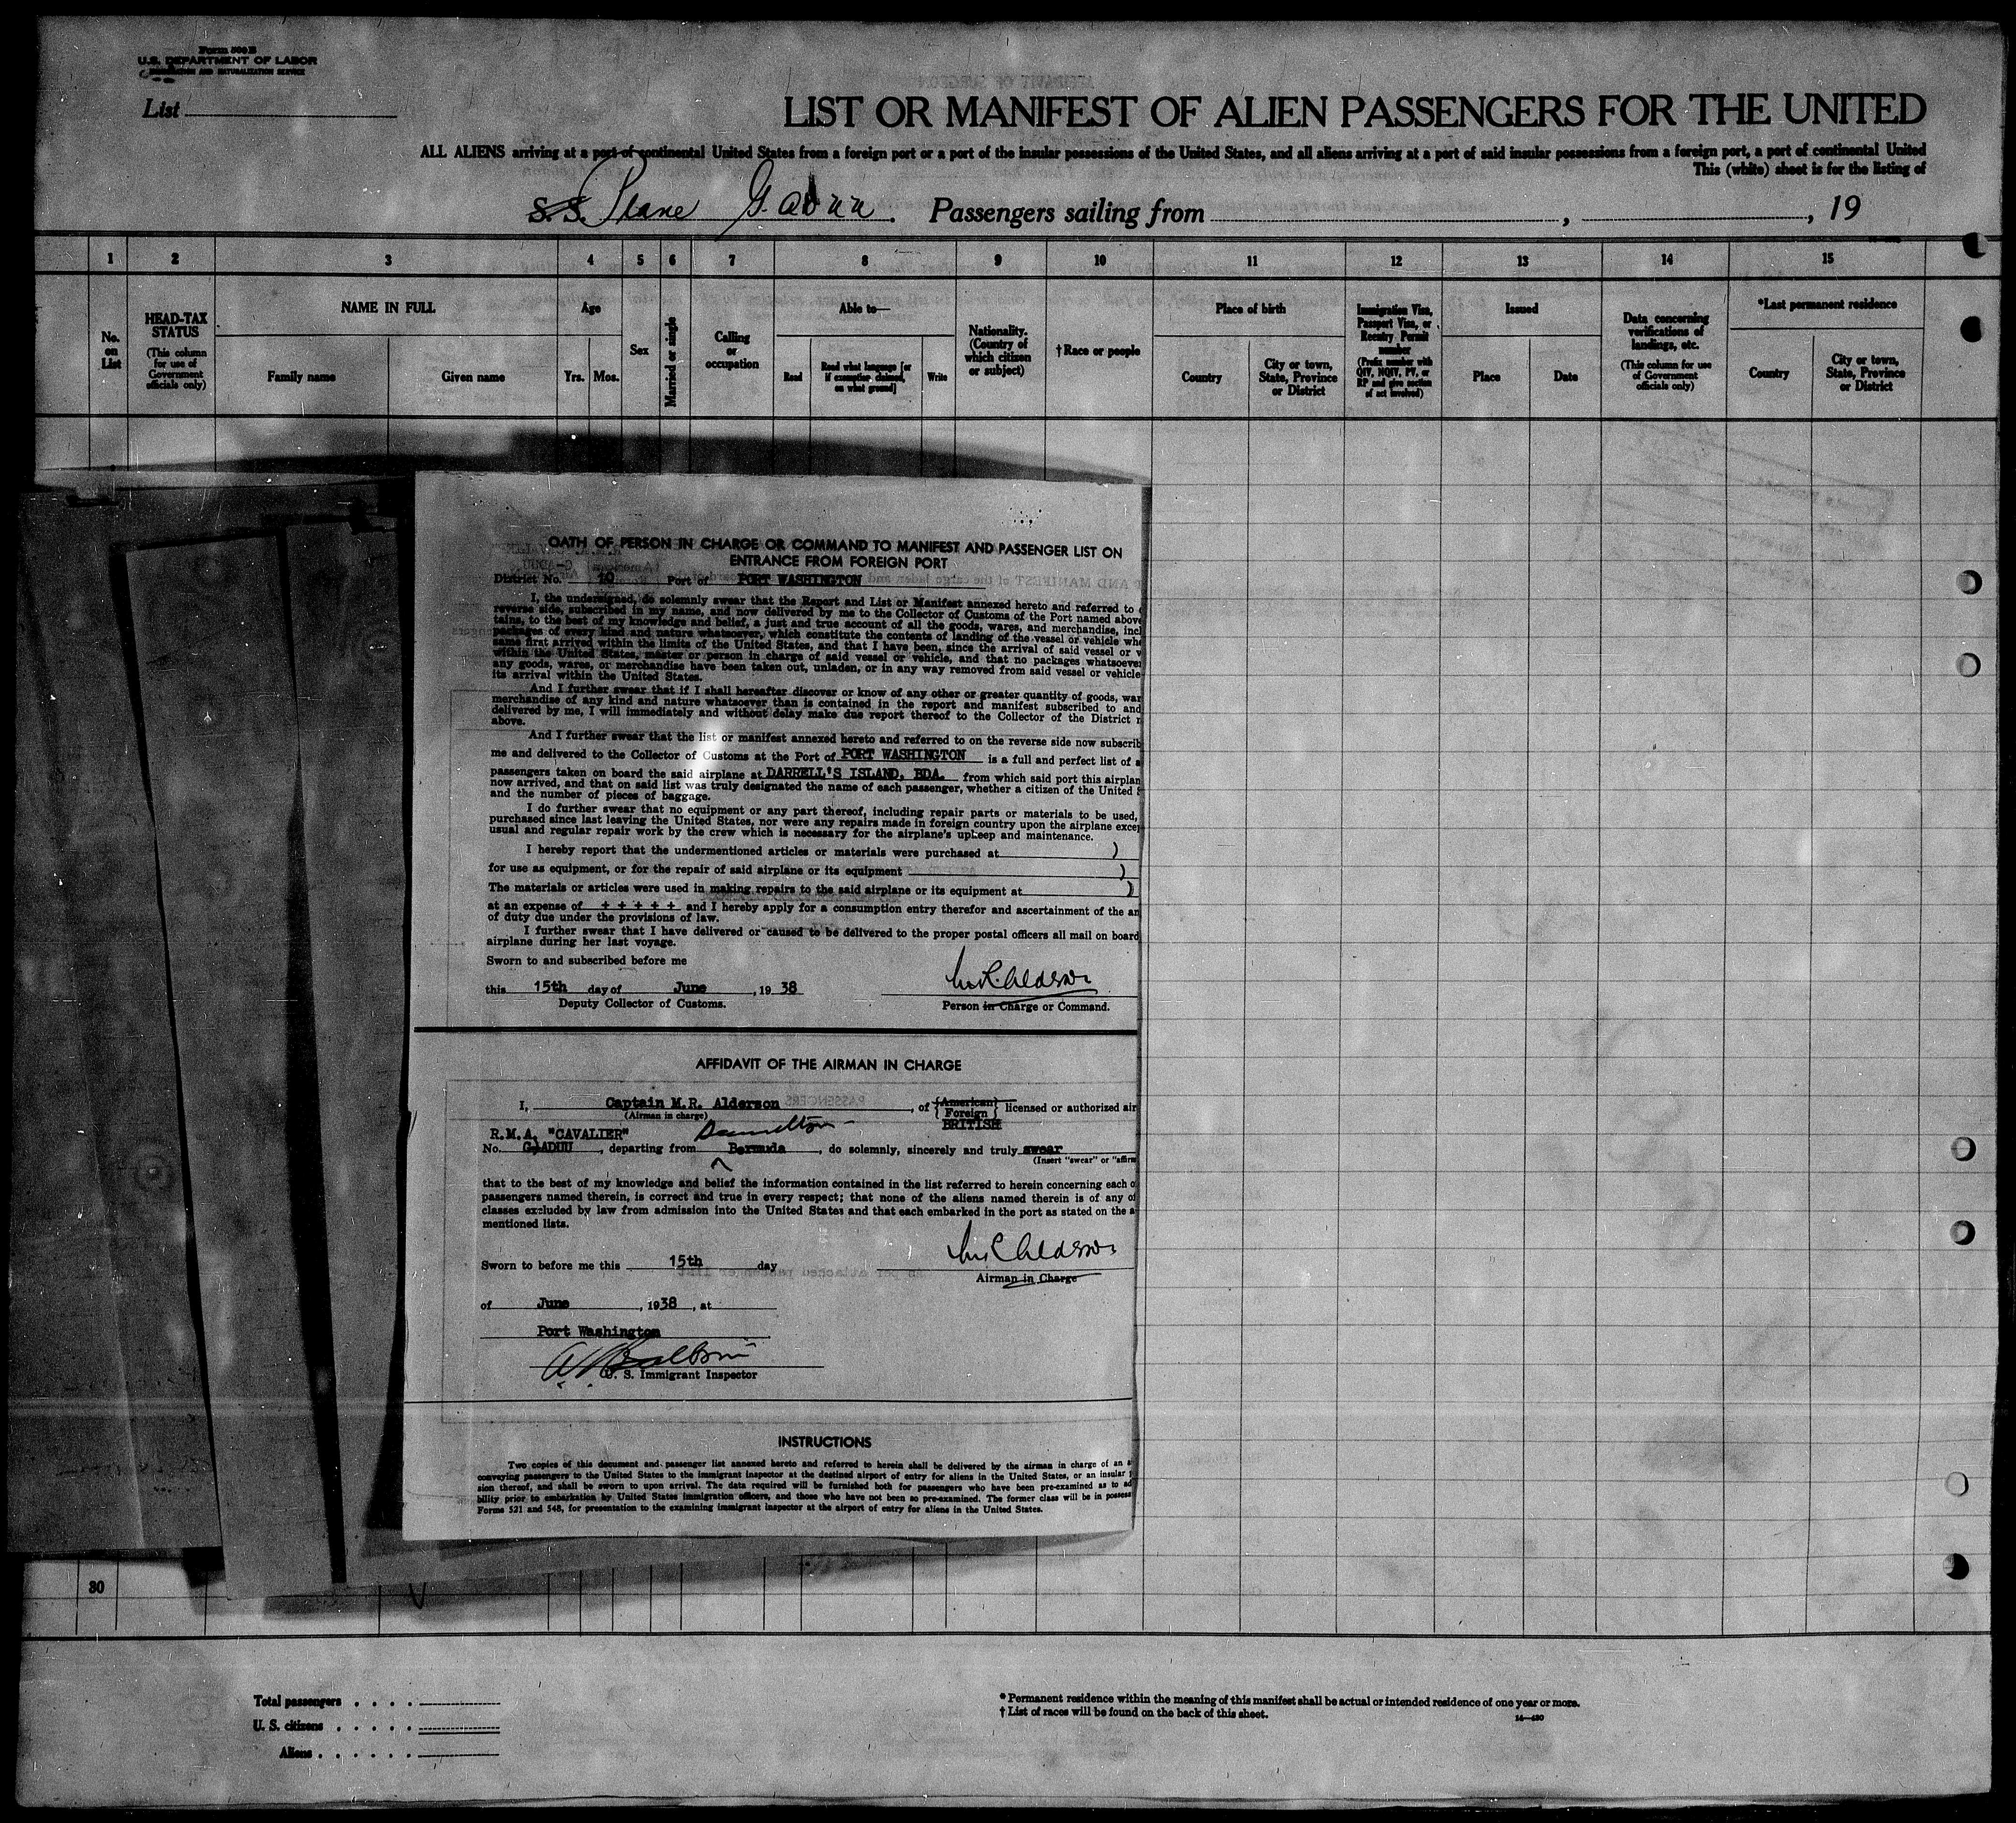 Form 500 B
U.S. DEPARTMENT OF LABOR
IMMIGRATION AND NATURALIZATION SERVICE
List
LIST OR MANIFEST OF ALIEN PASSENGERS FOR THE UNITED
ALL ALIENS arriving at a port of continental United States from a foreign port or a port of the insular possessions of the United States, and all aliens arriving at a port of said insular possessions from a foreign port, a port of continental United
This (white) sheet is for the listing of
S.S. Plane G. aduu Passengers sailing from , , 19
1 2 3 4 5 6 7 8 9 10 11 12 13 14 15
No. on List
HEAD-TAX STATUS
(This column for use of Government officials only)
NAME IN FULL
Family name
Given name
Age
Yrs. Mos.
Sex
Married or single
Calling or occupation
Able to—
Read
Read what language [or if exemption claimed, on what ground]
Write
Nationality. (Country of which citizen or subject)
† Race or people
Place of birth
Country
City or town, State, Province or District
Immigration Visa, Passport Visa, or Reentry Permit number
(Prefix number with QIV, NQIV, PV, or RP and give section of act involved)
Issued
Place
Date
Data concerning verifications of landings, etc.
(This column for use of Government officials only)
*Last permanent residence
Country
City or town, State, Province or District
OATH OF PERSON IN CHARGE OR COMMAND TO MANIFEST AND PASSENGER LIST ON
ENTRANCE FROM FOREIGN PORT
District No. 10 Port of PORT WASHINGTON
I, the undersigned, do solemnly swear that the Report and List or Manifest annexed hereto and referred to
reverse side, subscribed in my name, and now delivered by me to the Collector of Customs of the Port named above
tains, to the best of my knowledge and belief, a just and true account of all the goods, wares, and merchandise, incl
packages of every kind and nature whatsoever, which constitute the contents of landing of the vessel or vehicle whe
same first arrived within the limits of the United States, and that I have been, since the arrival of said vessel or v
within the United States, master or person in charge of said vessel or vehicle, and that no packages whatsoever
any goods, wares, or merchandise have been taken out, unladen, or in any way removed from said vessel or vehicle
its arrival within the United States.
And I further swear that if I shall hereafter discover or know of any other or greater quantity of goods, war
merchandise of any kind and nature whatsoever than is contained in the report and manifest subscribed to and
delivered by me, I will immediately and without delay make due report thereof to the Collector of the District n
above.
And I further swear that the list or manifest annexed hereto and referred to on the reverse side now subscrib
me and delivered to the Collector of Customs at the Port of PORT WASHINGTON is a full and perfect list of a
passengers taken on board the said airplane at DARRELL'S ISLAND, BDA. from which said port this airplan
now arrived, and that on said list was truly designated the name of each passenger, whether a citizen of the United S
and the number of pieces of baggage.
I do further swear that no equipment or any part thereof, including repair parts or materials to be used,
purchased since last leaving the United States, nor were any repairs made in foreign country upon the airplane excep
usual and regular repair work by the crew which is necessary for the airplane's upkeep and maintenance.
I hereby report that the undermentioned articles or materials were purchased at )
for use as equipment, or for the repair of said airplane or its equipment )
The materials or articles were used in making repairs to the said airplane or its equipment at )
at an expense of + + + + + and I hereby apply for a consumption entry therefor and ascertainment of the am
of duty due under the provisions of law.
I further swear that I have delivered or caused to be delivered to the proper postal officers all mail on board
airplane during her last voyage.
Sworn to and subscribed before me
this 15th day of June , 19 38 M R. Alderson
Deputy Collector of Customs. Person in Charge or Command.
AFFIDAVIT OF THE AIRMAN IN CHARGE
I, Captain M.R. Alderson , of {American} {Foreign} licensed or authorized air
(Airman in charge)
BRITISH
R.M.A. "CAVALIER" Hamilton
No. G-ADUU , departing from Bermuda , do solemnly, sincerely and truly swear
(Insert "swear" or "affirm
that to the best of my knowledge and belief the information contained in the list referred to herein concerning each o
passengers named therein, is correct and true in every respect; that none of the aliens named therein is of any of
classes excluded by law from admission into the United States and that each embarked in the port as stated on the a
mentioned lists.
M R Alderson
Sworn to before me this 15th day
Airman in Charge
of June , 1938 , at
Port Washington
U. S. Immigrant Inspector
INSTRUCTIONS
Two copies of this document and passenger list annexed hereto and referred to herein shall be delivered by the airman in charge of an a
conveying passengers to the United States to the immigrant inspector at the destined airport of entry for aliens in the United States, or an insular p
sion thereof, and shall be sworn to upon arrival. The data required will be furnished both for passengers who have been pre-examined as to ad
bility prior to embarkation by United States immigration officers, and those who have not been so pre-examined. The former class will be in possess
Forms 521 and 548, for presentation to the examining immigrant inspector at the airport of entry for aliens in the United States.
30
Total passengers
U. S. citizens
Aliens
* Permanent residence within the meaning of this manifest shall be actual or intended residence of one year or more.
† List of races will be found on the back of this sheet.
14—430